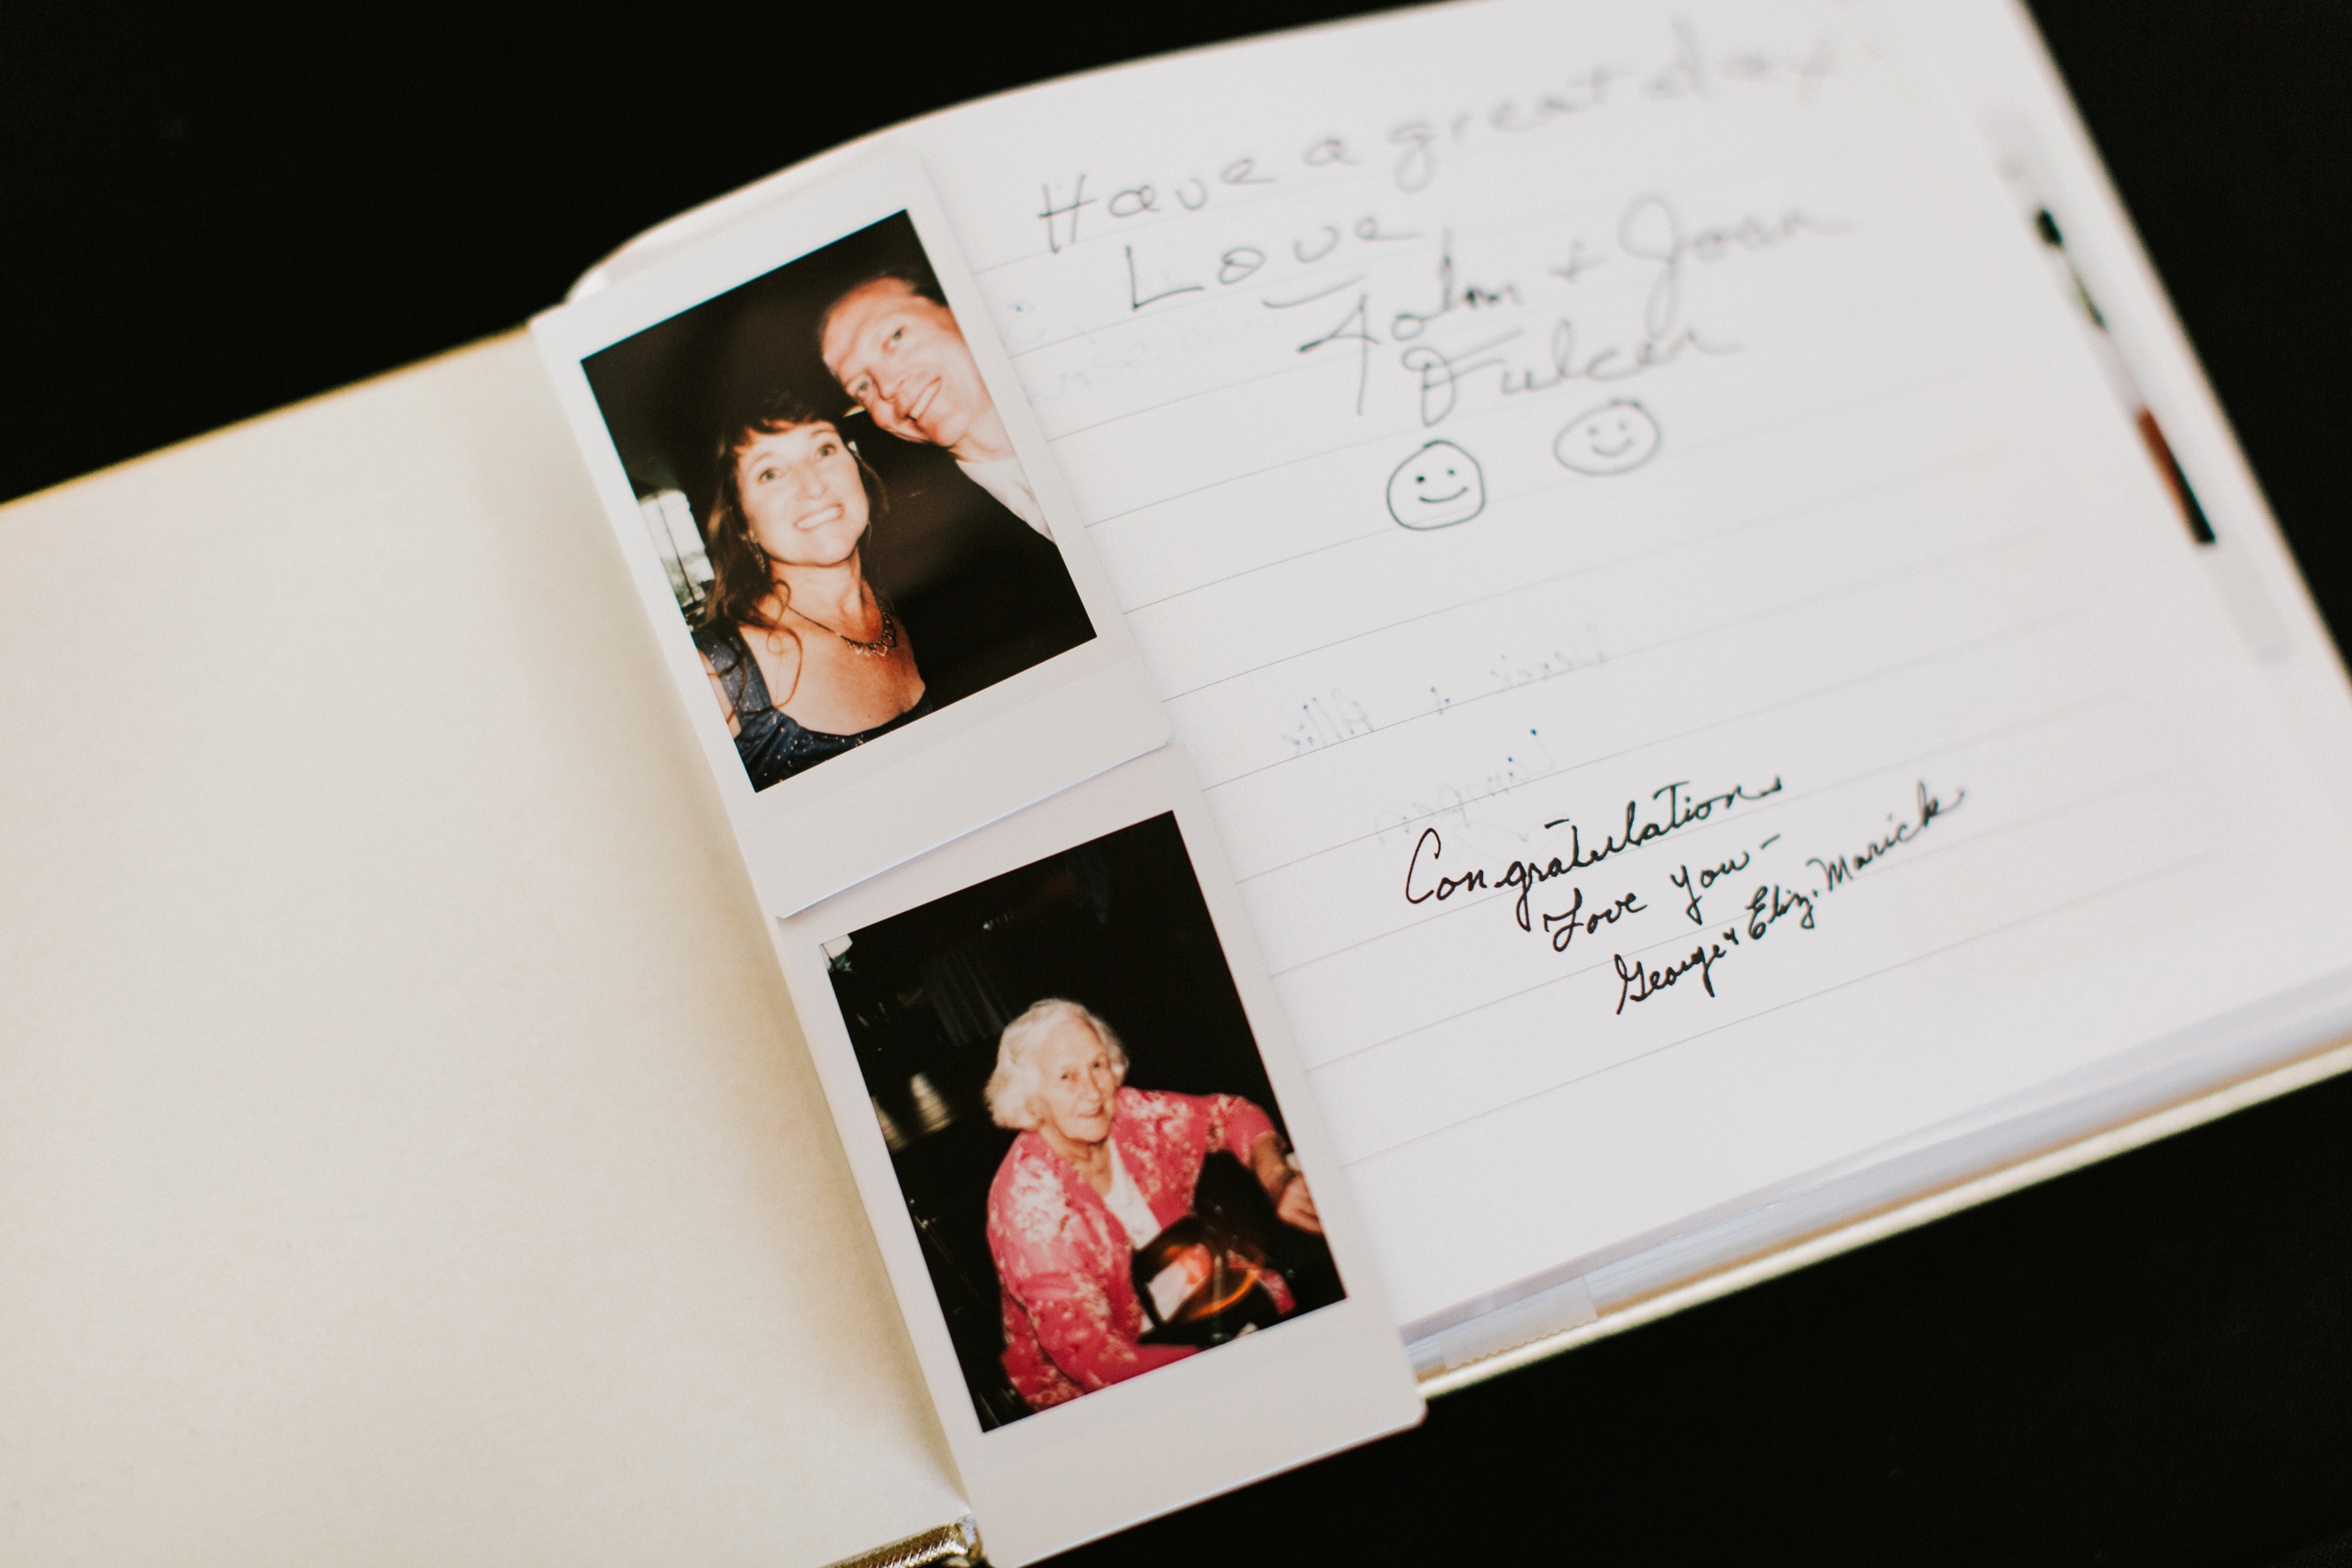 Have a great day!
Love
John + Joan
Fulcer
Congratulations
Love You-
George & Eliz. Marick